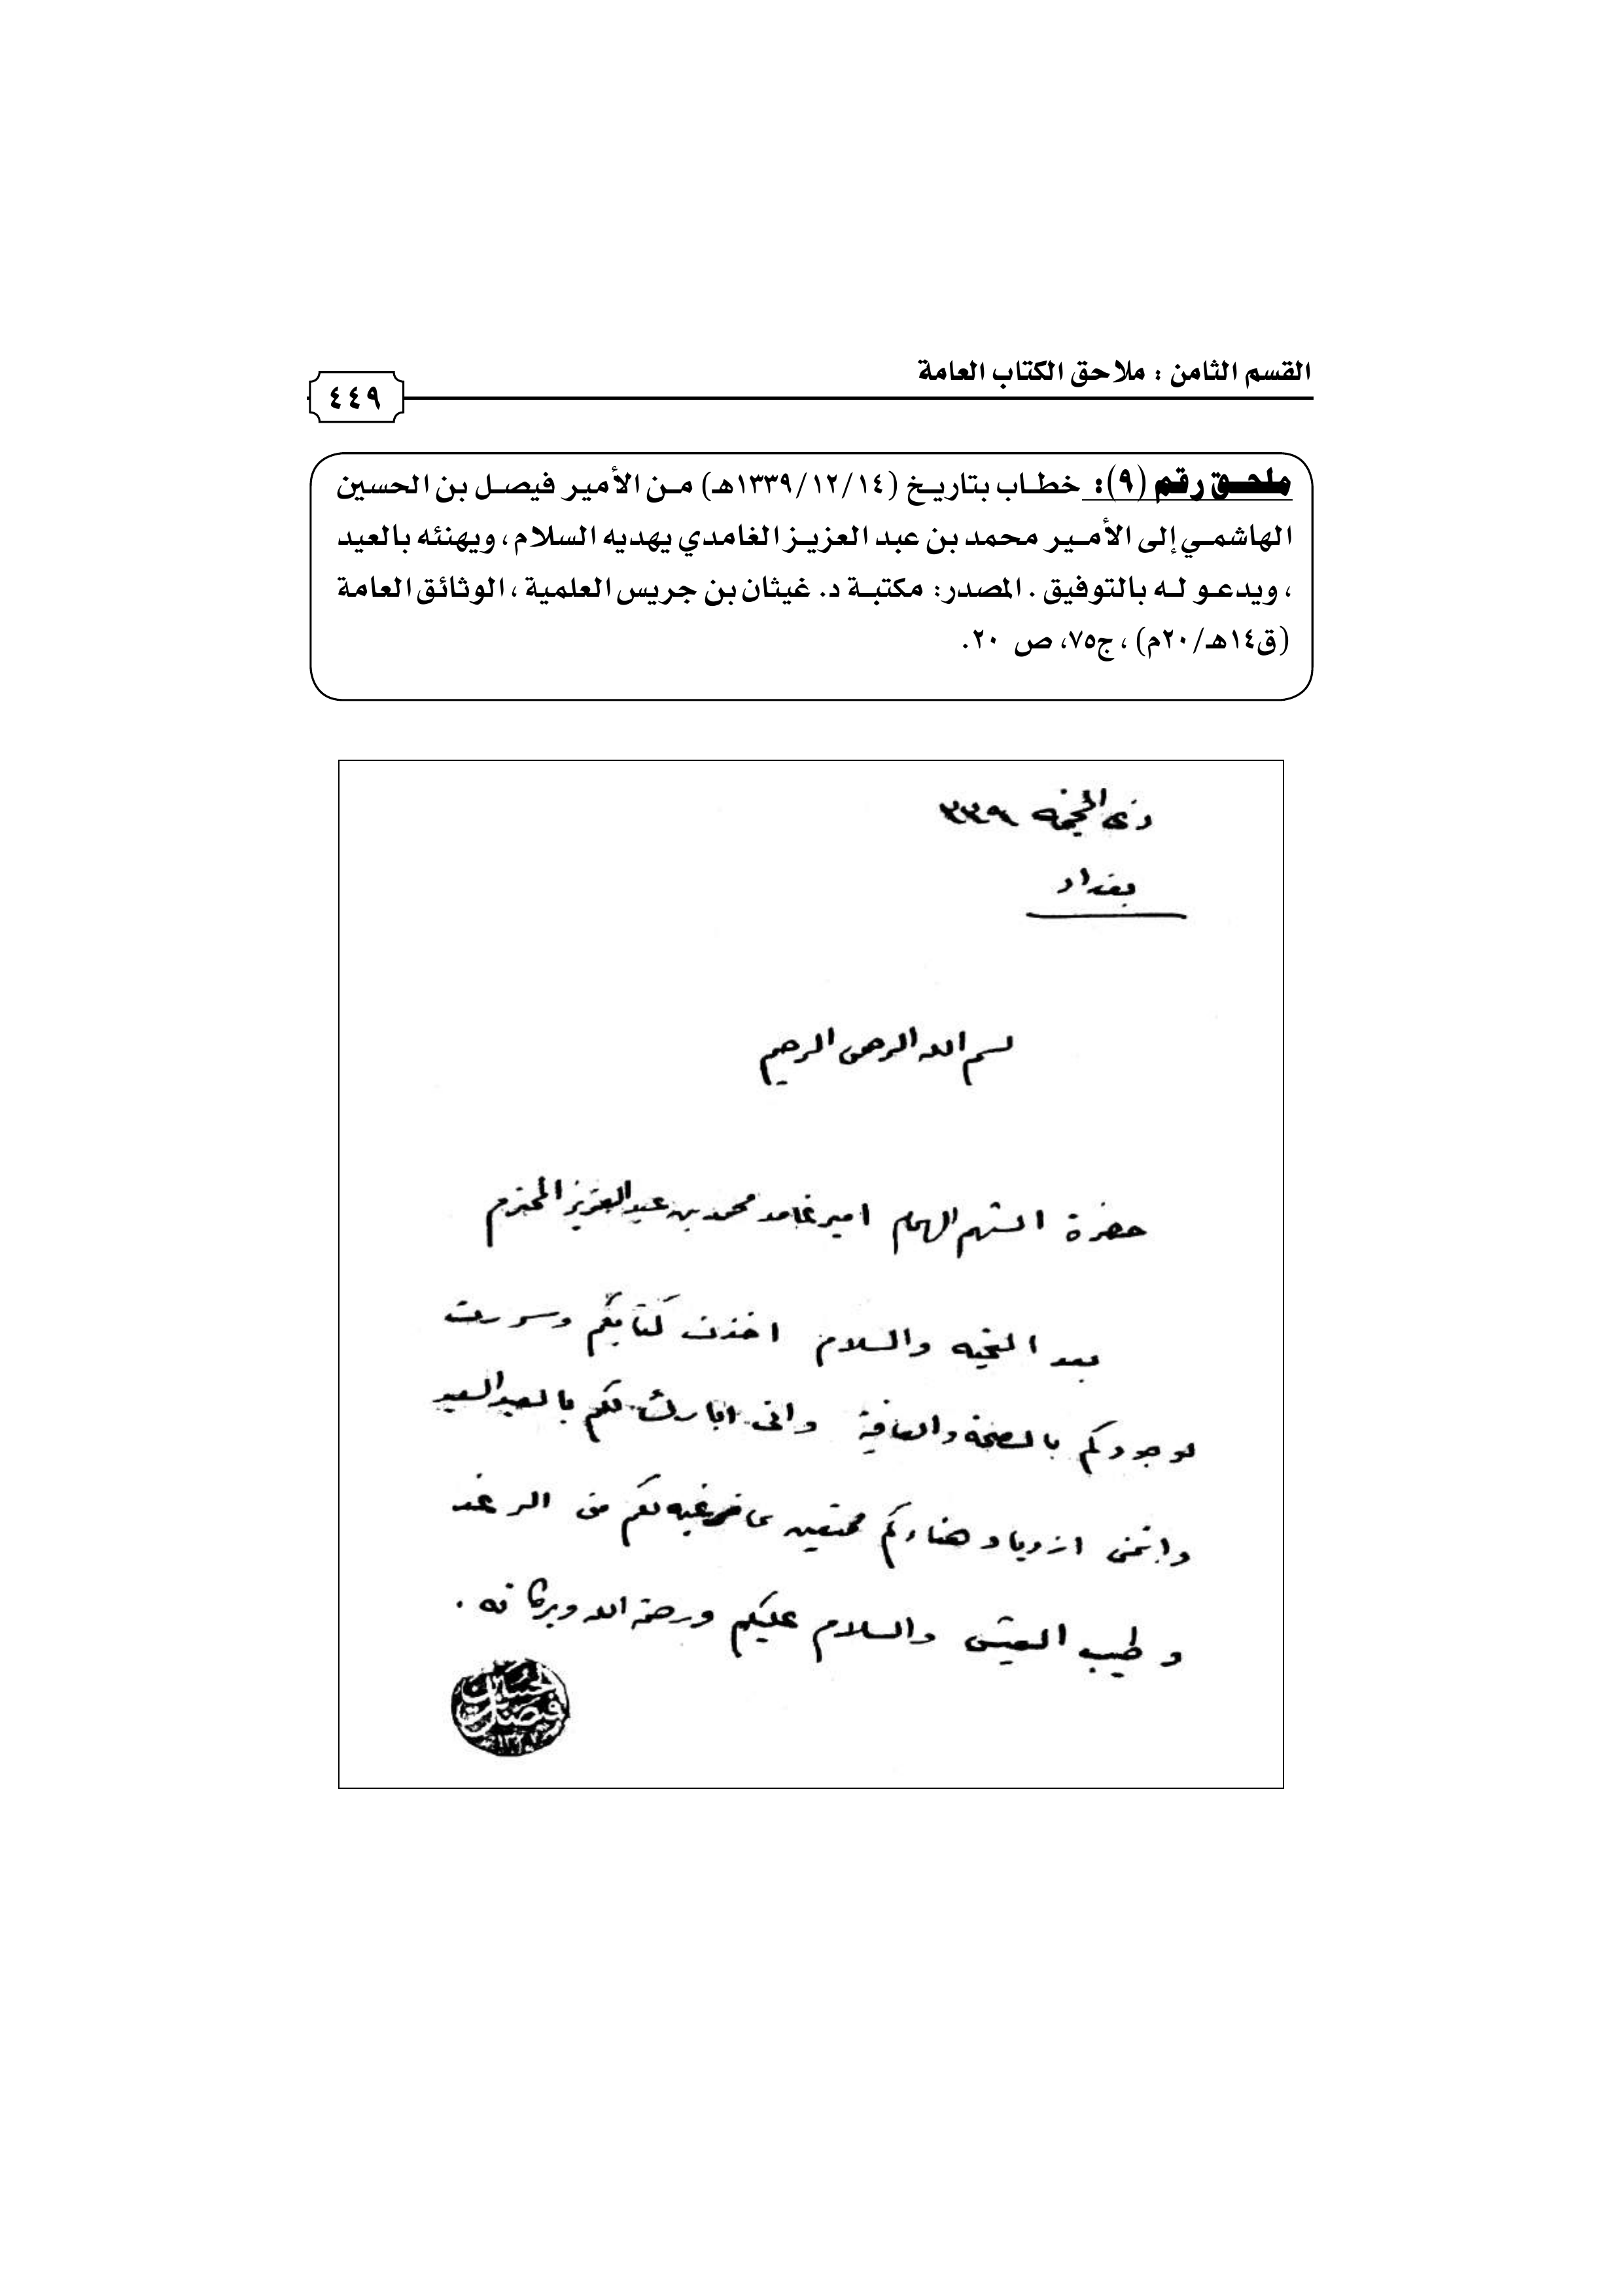 القسم الثامن : ملاحق الكتاب العامة
٤٤٩
ملحق رقم (٩): خطاب بتاريخ (١٣٣٩/١٢/١٤هـ) من الأمير فيصل بن الحسين
الهاشمي إلى الأمير محمد بن عبد العزيز الغامدي يهديه السلام ، ويهنئه بالعيد
، ويدعو له بالتوفيق . المصدر: مكتبة د. غيثان بن جريس العلمية ، الوثائق العامة
(ق١٤هـ/٢٠م) ، ج٧٥، ص ٢٠.
ذى الحجه ٣٣٩
بغداد
بسم الله الرحمن الرحيم
حضرة الشهم الهمام امير غامد محمد بن عبد العزيز المحترم
بعد التحيه والسلام اخذت كتابكم وسررت
لوجودكم بالصحة والعافية وانى ابارك لكم بالعيد السعيد
واتمنى ازدياد هناءكم متمتعين لكم من الرغد
وطيب العيش والسلام عليكم ورحمة الله وبركاته .
الحسين
فيصل بن